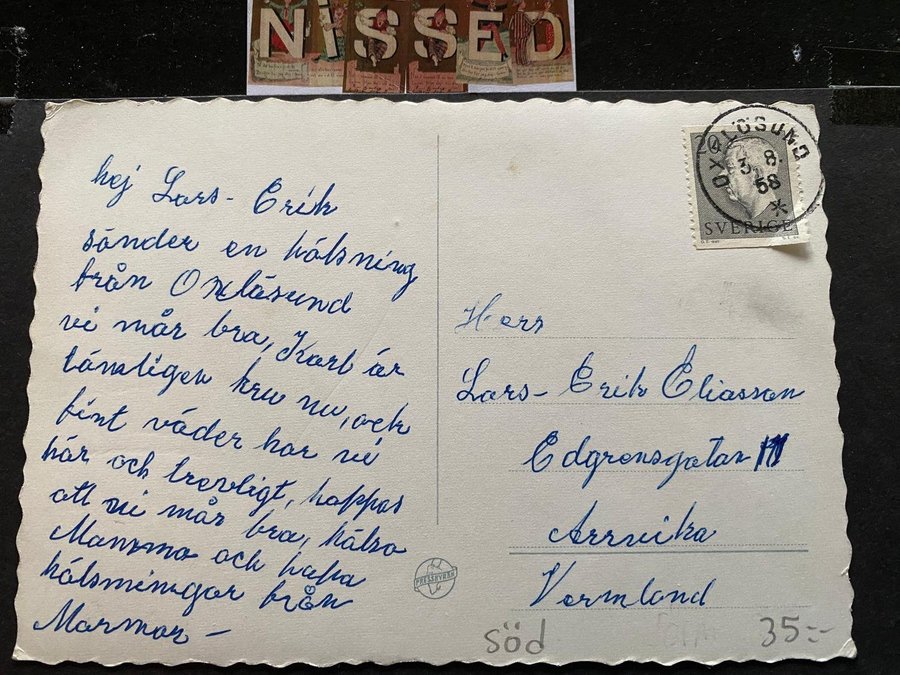 NiSSED
hej Lars-Erik
sänder en hälsning
från Oxelösund
vi mår bra, Karl är
tämligen kry nu, och
fint väder har vi
här och trevligt, hoppas
att ni mår bra, hälsa
Mamma och papa
hälsningar från
Mormor -
20
SVERIGE
OXELÖSUND
3. 8.
58
Herr
Lars-Erik Eliasson
Edgrensgatan
Arrvika
Vermland
PRESSBYRÅN
söd
35:-